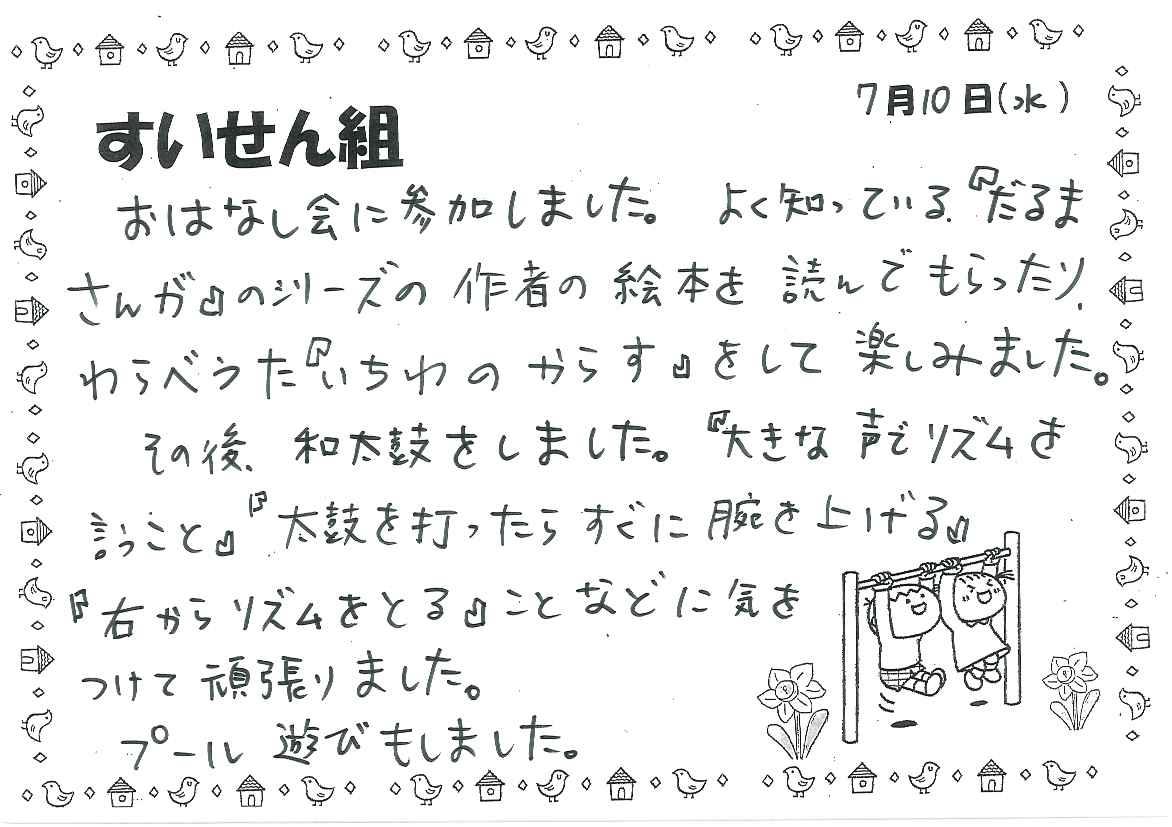 7月10日(水)
すいせん組
おはなし会に参加しました。 よく知っている、『だるま
さんが』のシリーズの作者の絵本を読んでもらったり、
わらべうた『いちわのからす』をして楽しみました。
その後、和太鼓をしました。『大きな声でリズムを
言うこと』『太鼓を打ったらすぐに腕を上げる』
『右からリズムをとる』ことなどに気を
つけて頑張りました。
プール遊びもしました。